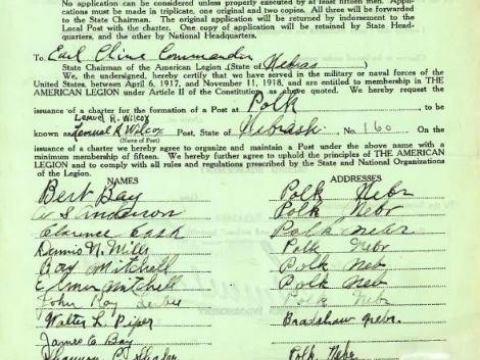 No application can be considered unless properly executed by at least fifteen men. Appli-
cations must be made in triplicate, one original and two copies. All three will be forwarded
to the State Chairman. The original application will be returned by indorsement to the
Local Post with the charter. One copy of application will be retained by State Head-
quarters, and the other by National Headquarters.
To Earl Cline Commander
State Chairman of the American Legion (State of Nebras)
We, the undersigned, hereby certify that we have served in the military or naval forces of the
United States, between April 6, 1917, and November 11, 1918, and are entitled to membership in THE
AMERICAN LEGION under Article II of the Constitution, as above quoted. We hereby request the
issuance of a charter for the formation of a Post at Polk to be
Lemuel R. Wilcox
known as Lemuel R Wilcox Post, State of Nebrask. No. 160 On the
(Name of Post)
issuance of a charter we hereby agree to organize and maintain a Post under the above name with a
minimum membership of fifteen. We hereby further agree to uphold the principles of THE AMERICAN
LEGION and to comply with all rules and regulations prescribed by the State and National Organizations
of the Legion.
NAMES ADDRESSES
Bert Bay Polk Nebr
Anderson Polk Nebr
Clarence Cash Polk Nebr
Dennis N. Mills Polk Nebr
Ray Mitchell Polk Neb
Elmer Mitchell Polk Neb
John Roy Polk Nebr
Walter L. Piper Bradshaw Nebr.
James A. Bay
Polk, Nebr